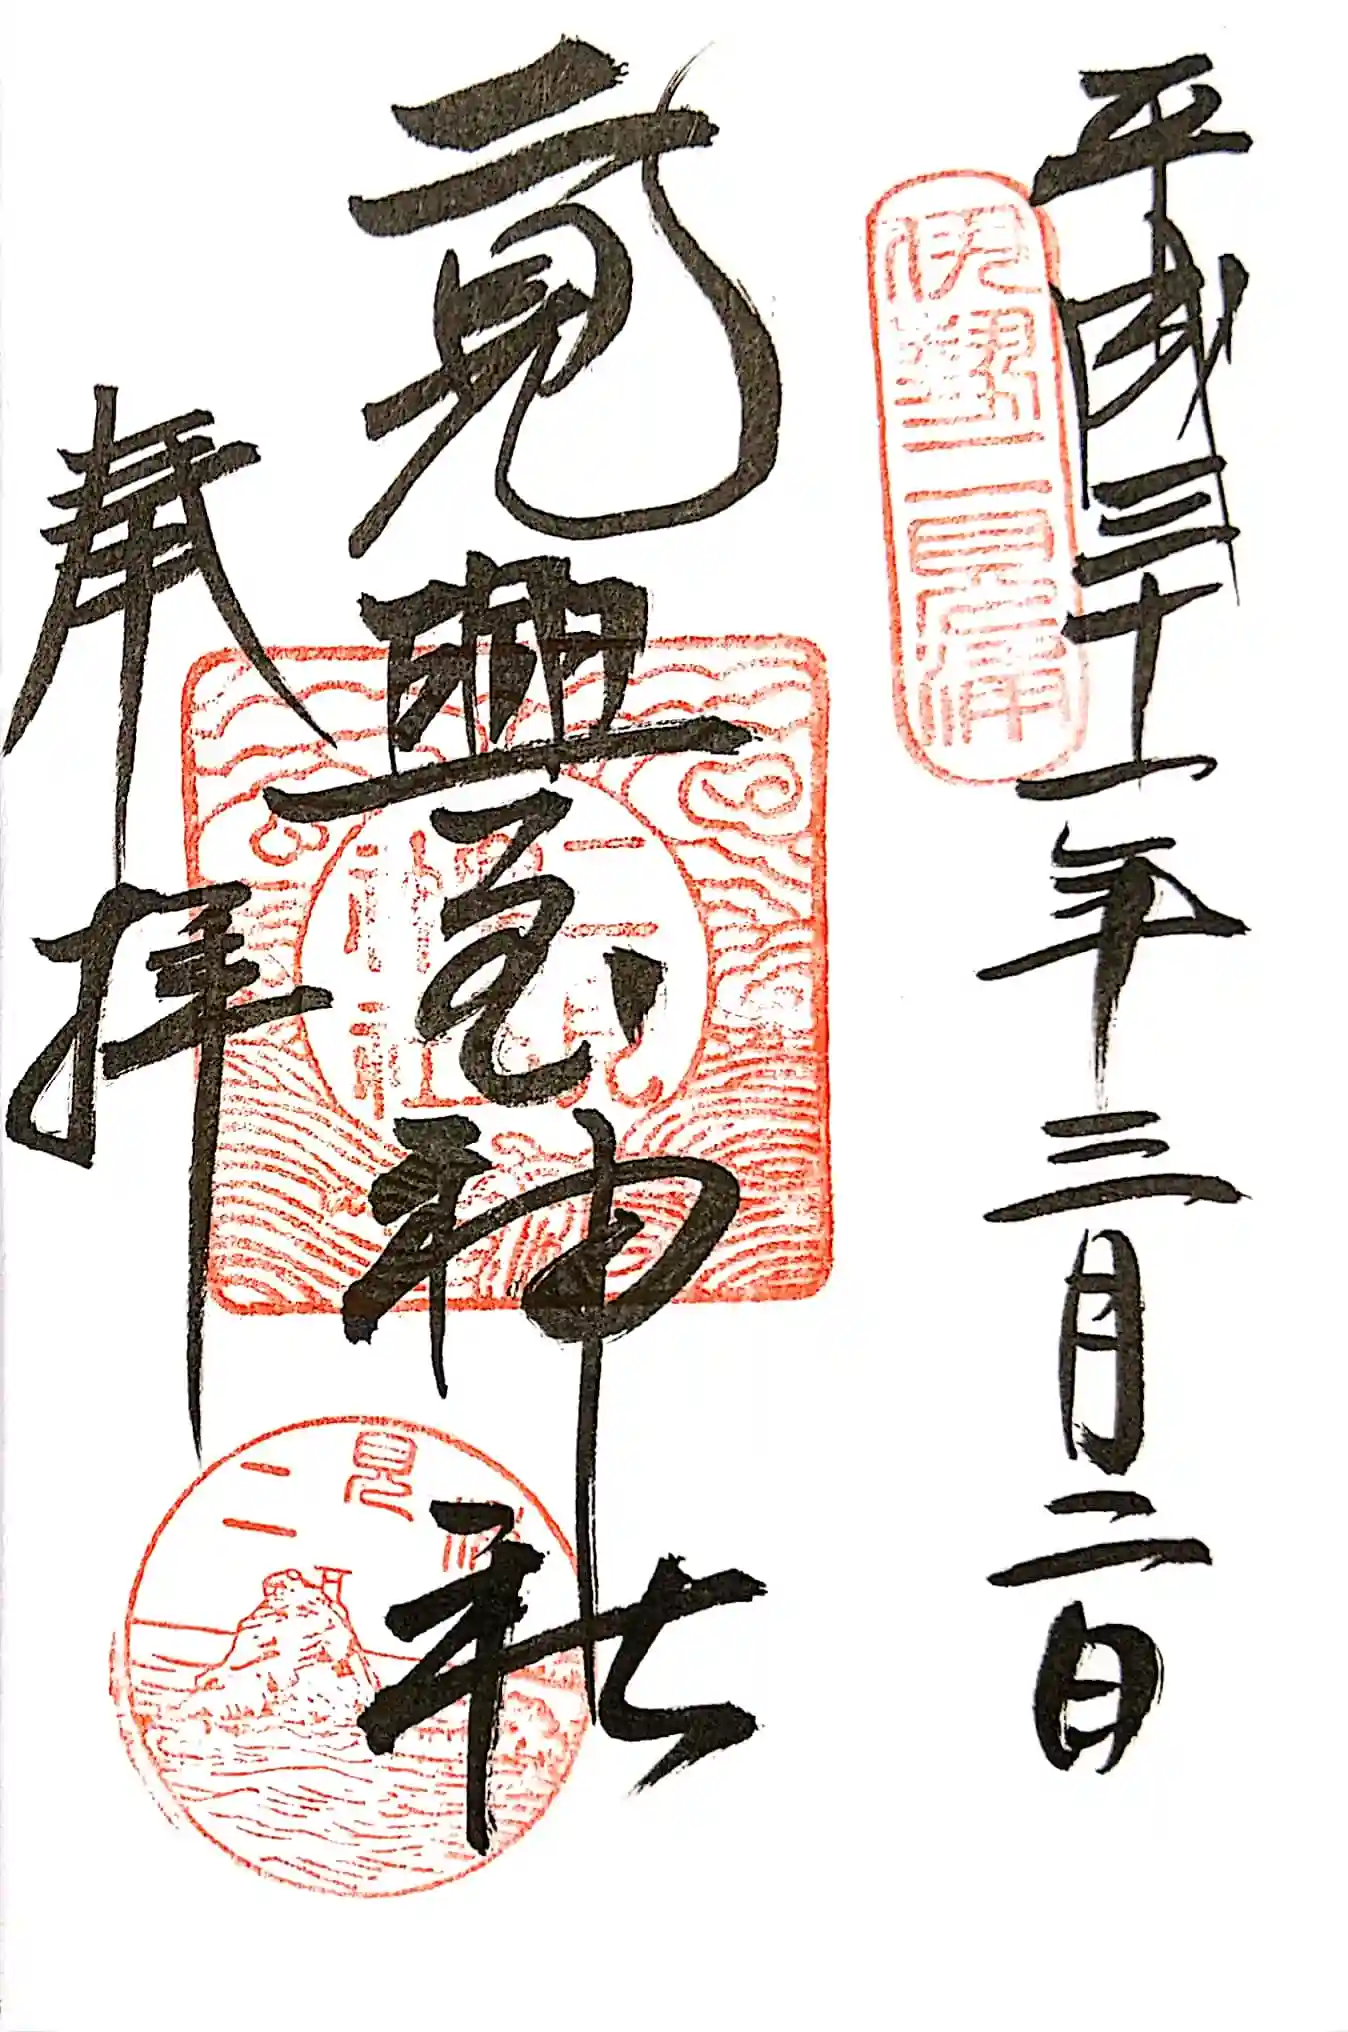 平成三十一年三月二日
伊勢二見浦
二見興玉神社
二見
神社
二見
奉拝